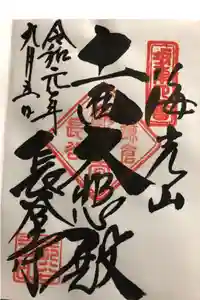 海光山
十一面大悲殿
長谷寺
令和元年
九月五日
鎌倉
長谷